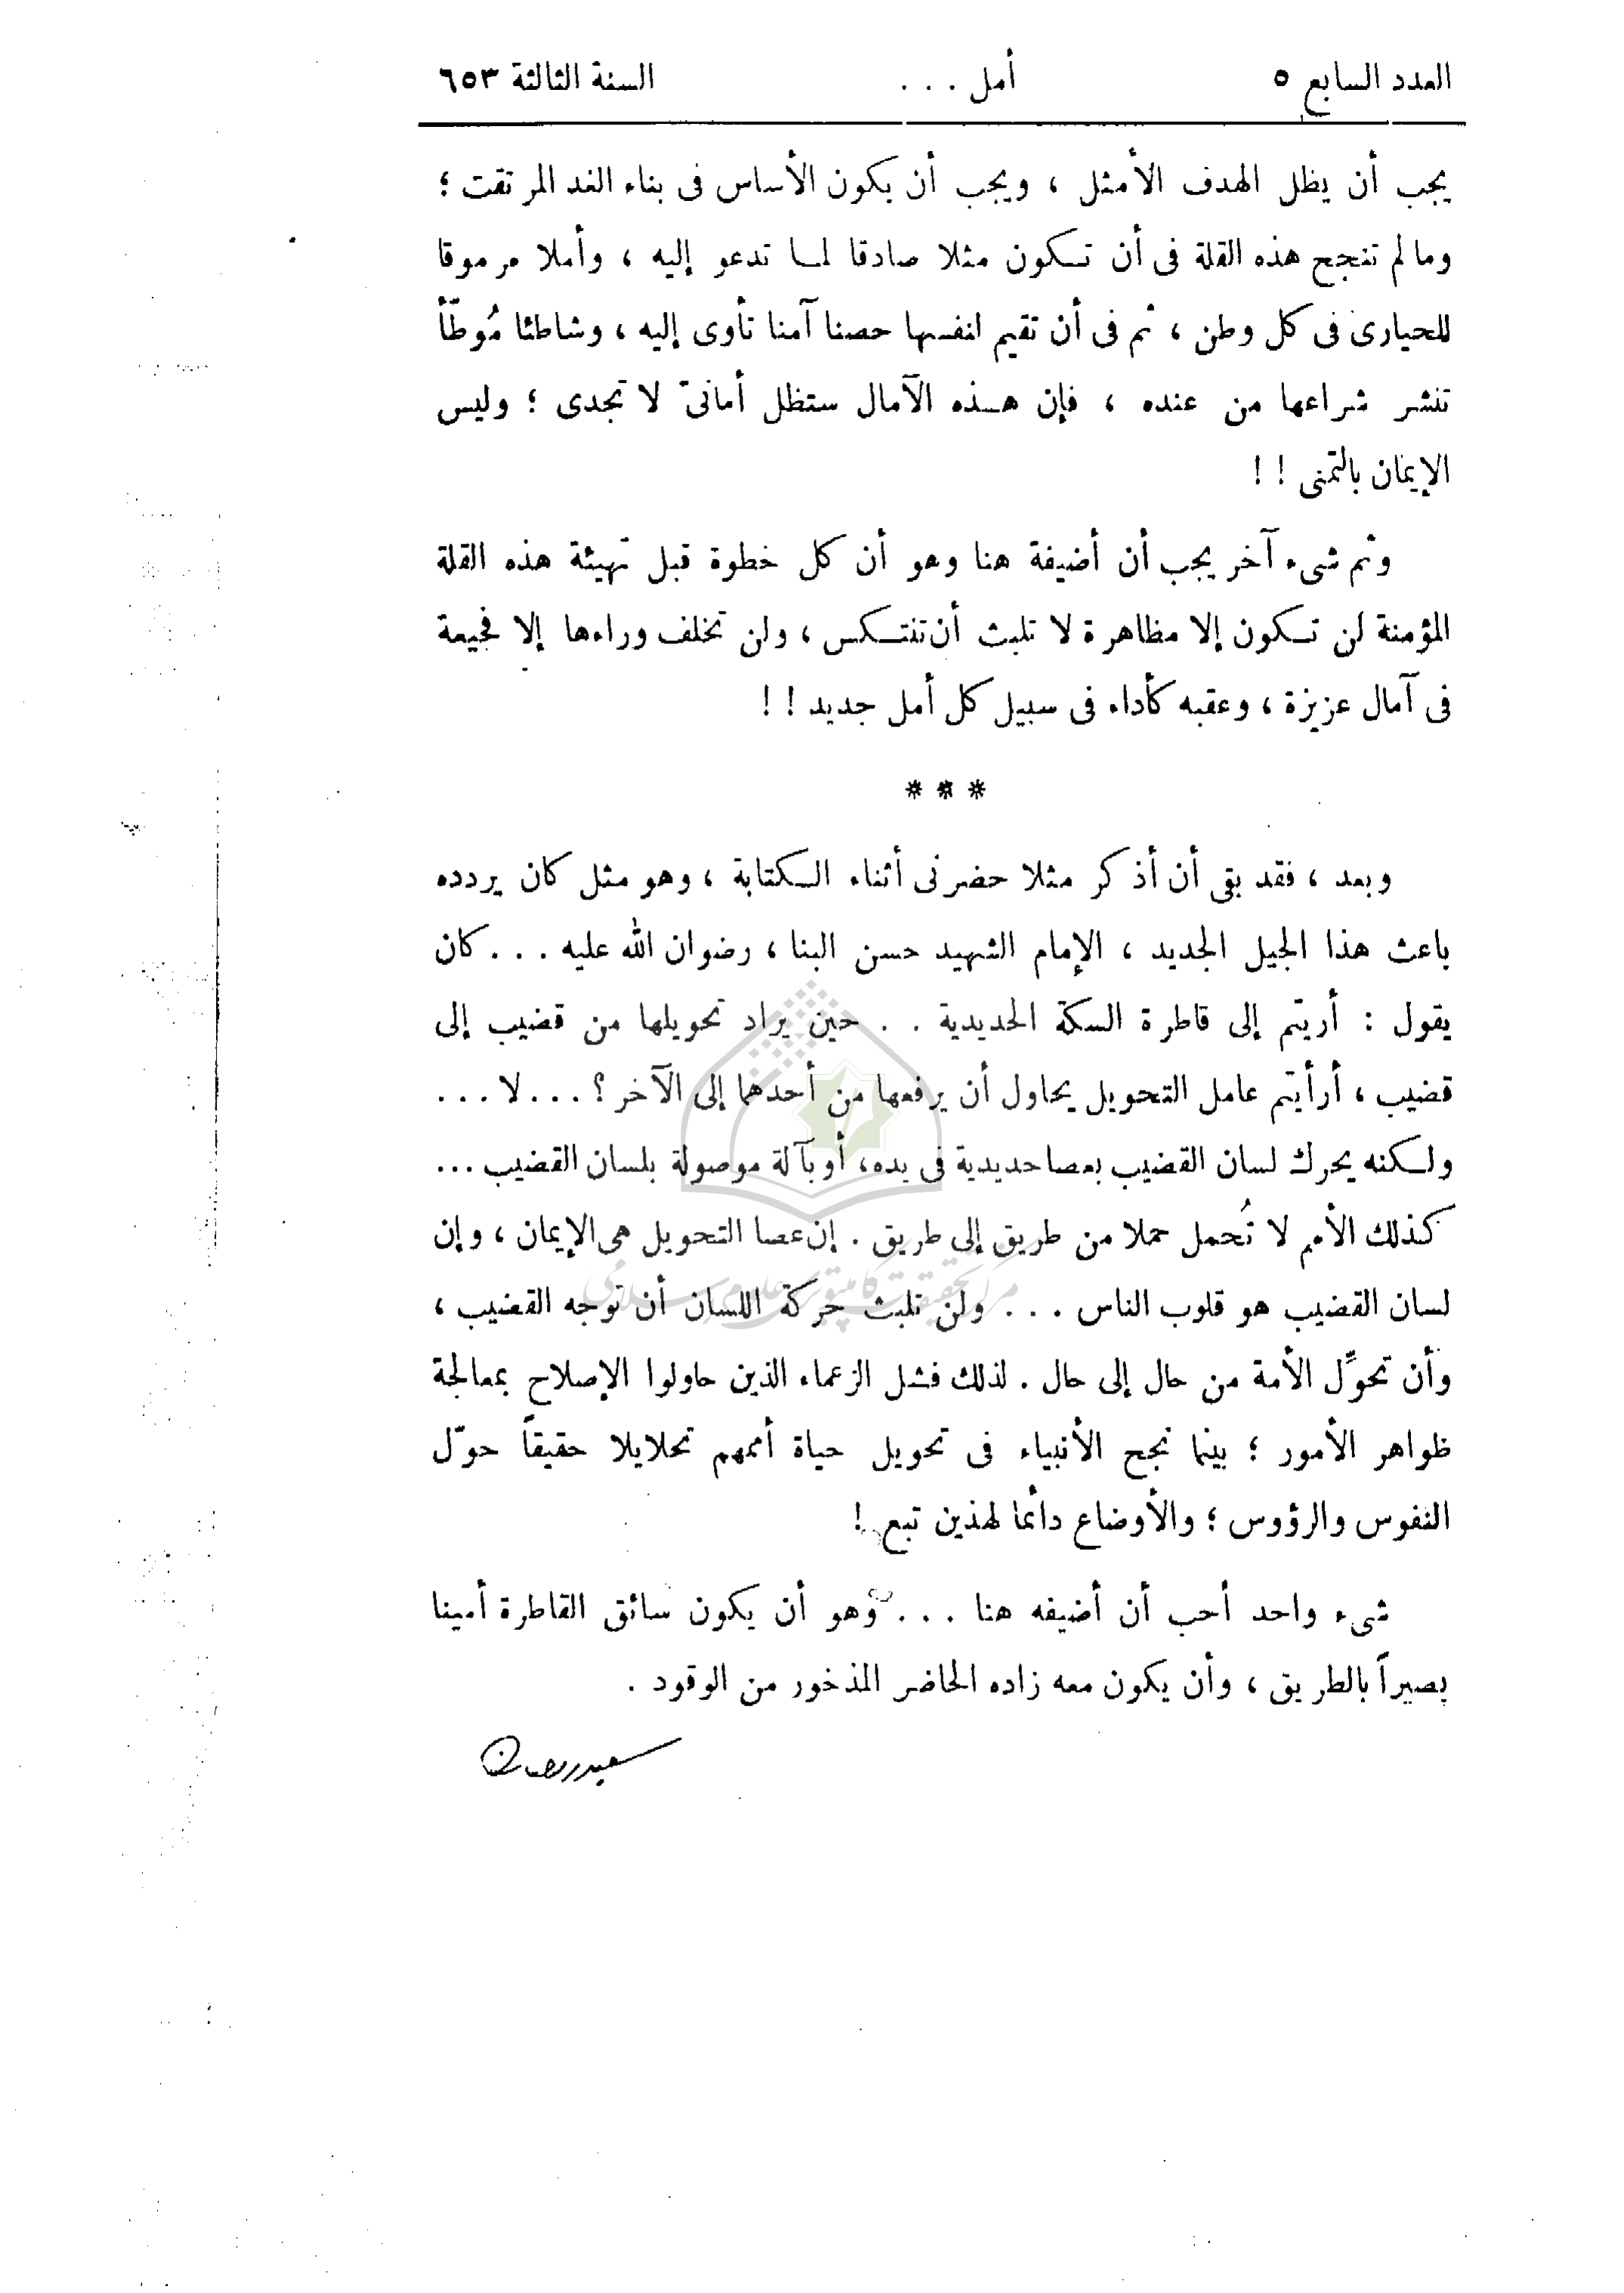 العدد السابع ٥ أمل . . . السنة الثالثة ٦٥٣
يجب أن يظل الهدف الأمثل ، ويجب أن يكون الأساس فى بناء الغد المرتقت ؛
ومالم تنجح هذه القلة فى أن تكون مثلا صادقا لما تدعو إليه ، وأملا مرموقا
للحيارى فى كل وطن ، ثم فى أن تقيم لنفسها حصنا آمنا تأوى إليه ، وشاطئا مُوطّأ
تنشر شراعها من عنده ، فإن هذه الآمال ستظل أمانىّ لا تجدى ؛ وليس
الإيمان بالتمنى ! !
وثم شىء آخر يجب أن أضيفة هنا وهو أن كل خطوة قبل تهيئة هذه القلة
المؤمنة لن تكون إلا مظاهرة لا تلبث أن تنتكس ، ولن تخلف وراءها إلا فجيعة
فى آمال عزيزة ، وعقبه كأداء فى سبيل كل أمل جديد ! !
* * *
وبعد ، فقد بقى أن أذكر مثلا حضرنى أثناء الكتابة ، وهو مثل كان يردده
باعث هذا الجيل الجديد ، الإمام الشهيد حسن البنا ، رضوان الله عليه . . . كان
يقول : أريتم إلى قاطرة السكة الحديدية . . حين يراد تحويلها من قضيب إلى
قضيب ، أرأيتم عامل التحويل يحاول أن يرفعها من أحدهما إلى الآخر ؟ . . . لا . . .
ولكنه يحرك لسان القضيب بعصا حديدية فى يده، أو بآلة موصولة بلسان القضيب ...
كذلك الأمم لا تُحمل حملا من طريق إلى طريق . إن عصا التحويل هى الإيمان ، وإن
لسان القضيب هو قلوب الناس . . . ولن تلبث حركة اللسان أن توجه القضيب ،
وأن تحوِّل الأمة من حال إلى حال . لذلك فشل الزعماء الذين حاولوا الإصلاح بمعالجة
ظواهر الأمور ؛ بينما نجح الأنبياء فى تحويل حياة أممهم تحلايلا حقيقاً حوّل
النفوس والرؤوس ؛ والأوضاع دائما لهذين تبع !
شىء واحد أحب أن أضيفه هنا . . . وهو أن يكون سائق القاطرة أمينا
بصيراً بالطريق ، وأن يكون معه زاده الحاضر المذخور من الوقود .
سعيد رمضان
مركز تحقيقات كامپيوترى علوم اسلامى